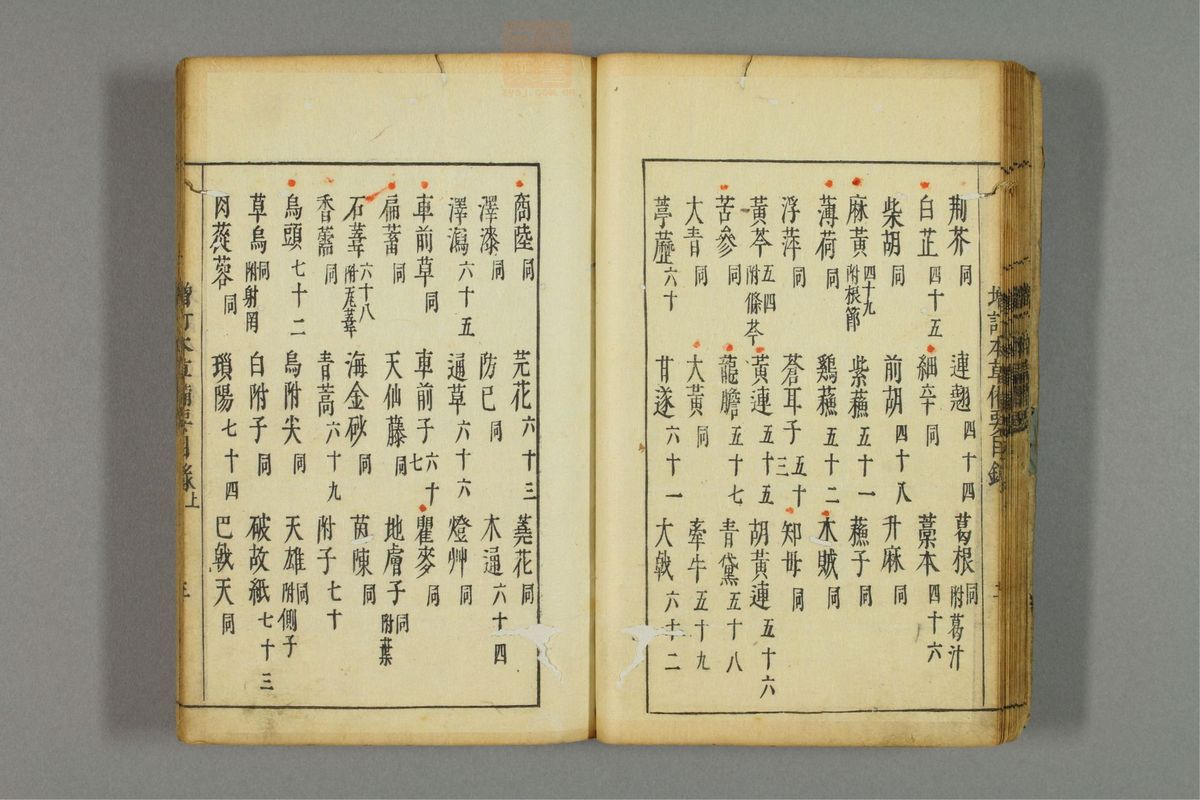 增訂本草備要目錄
荆芥 同 連翹 四十四 葛根 同 附葛汁
白芷 四十五 細辛 同 藁本 四十六
柴胡 同 前胡 四十八 升麻 同
麻黃 四十九 附根節 紫蘓 五十一 蘓子 同
薄荷 同 鷄蘓 五十二 木賊 同
浮萍 同 蒼耳子 五十三 知母 同
黃芩 五四 附條芩 黃連 五十五 胡黃連 五十六
苦參 同 龍膽 五十七 青黛 五十八
大青 同 大黃 同 牽牛 五十九
葶藶 六十 甘遂 六十一 大戟 六十二
商陸 同 芫花 六十三 蕘花 同
澤漆 同 防已 同 木通 六十四
澤瀉 六十五 通草 六十六 燈艸 同
車前草 同 車前子 六十七 瞿麥 同
扁蓄 同 天仙藤 同 地膚子 同 附葉
石葦 六十八 附瓦葦 海金砂 同 茵陳 同
香薷 同 青蒿 六十九 附子 七十
烏頭 七十二 烏附尖 同 天雄 同 附側子
草烏 同 附射罔 白附子 同 破故紙 七十三
肉蓯蓉 同 瑣陽 七十四 巴戟天 同
增訂本草備要目錄 上 三